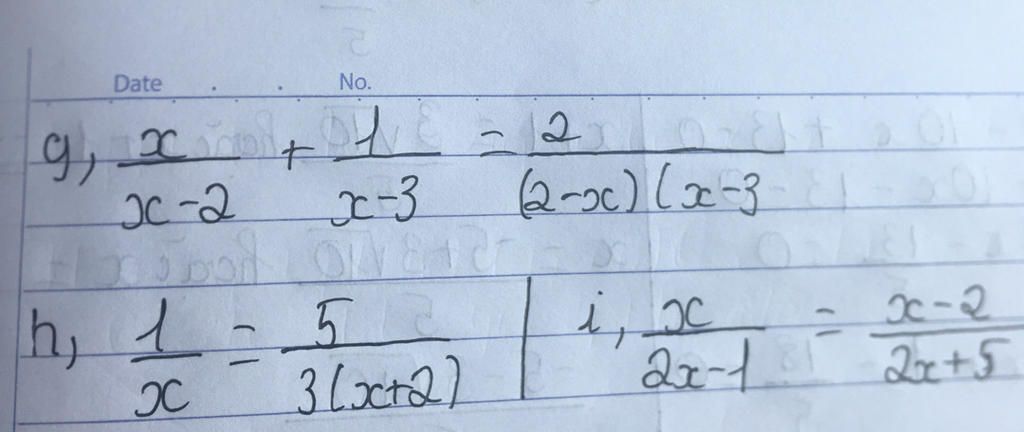 Date . . No.
g, x/(x-2) + 1/(x-3) = 2/((2-x)(x-3
h, 1/x = 5/(3(x+2)) | i, x/(2x-1) = (x-2)/(2x+5)